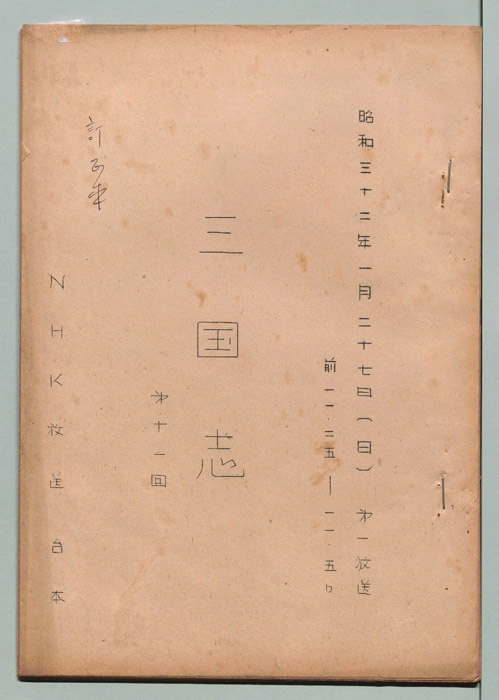 昭和三十二年一月二十七日（日）　第一放送
前一一・二五―一一・五〇
三国志
第十一回
訂正本
NHK放送台本